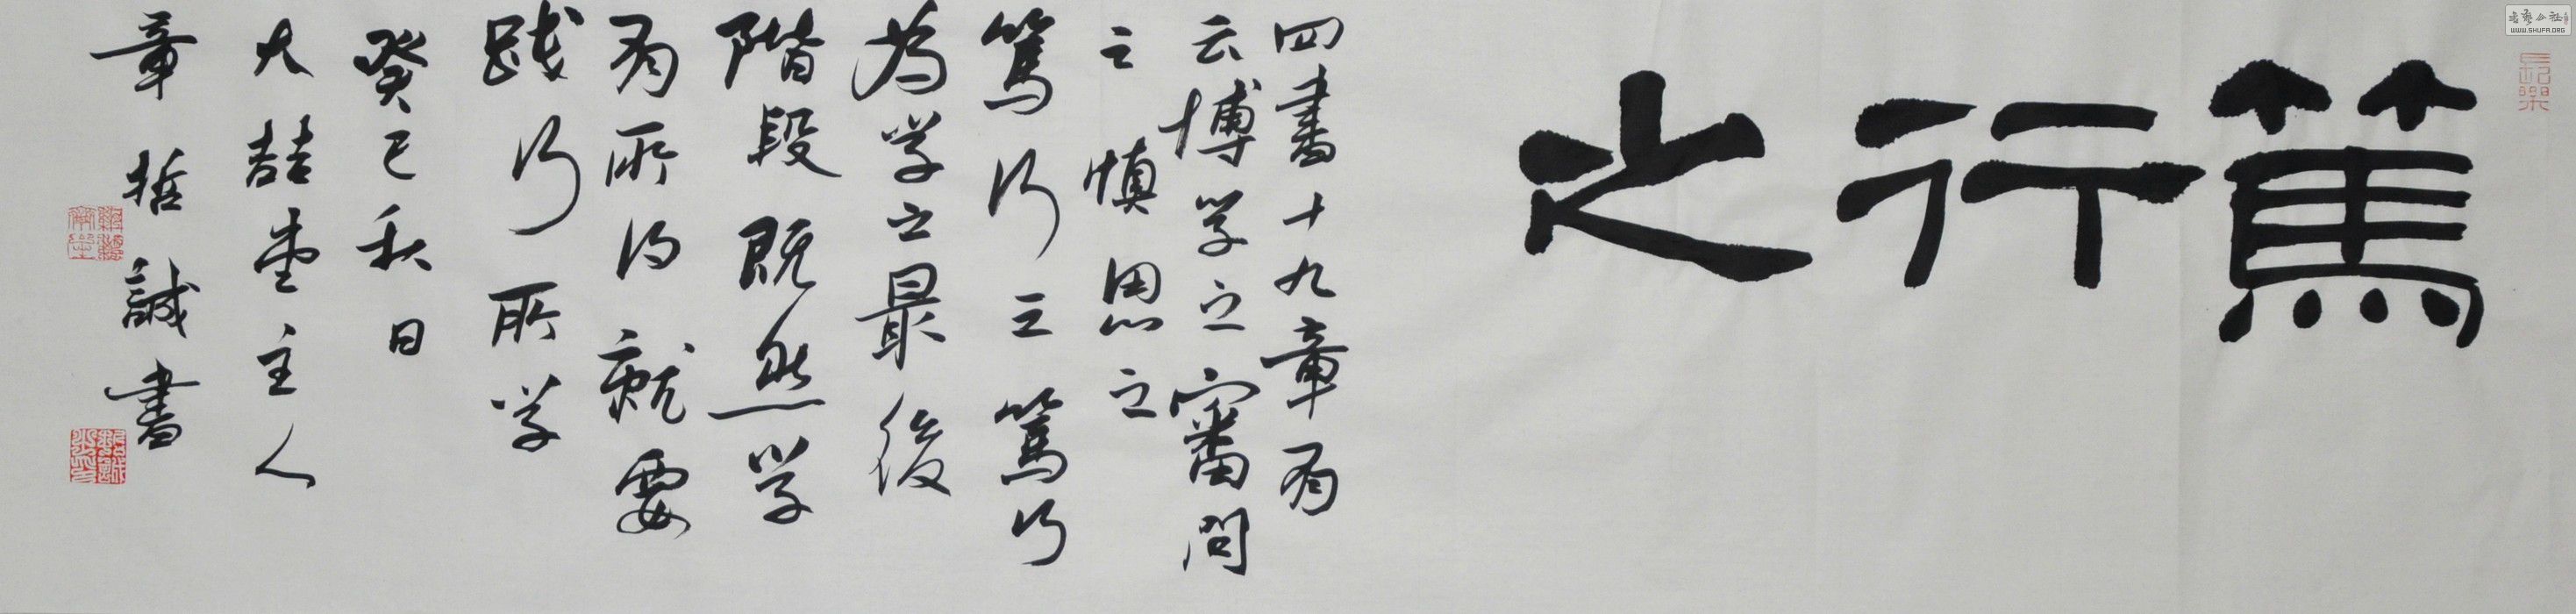 篤行之
長樂
四書十九章有
云博学之審問
之慎思之
篤行之篤行
为学之最後
階段既然学
有所得就要
践行所学
癸巳秋日
大喆堂主人
章哲誠書
书艺公社
WWW.SHUFA.ORG